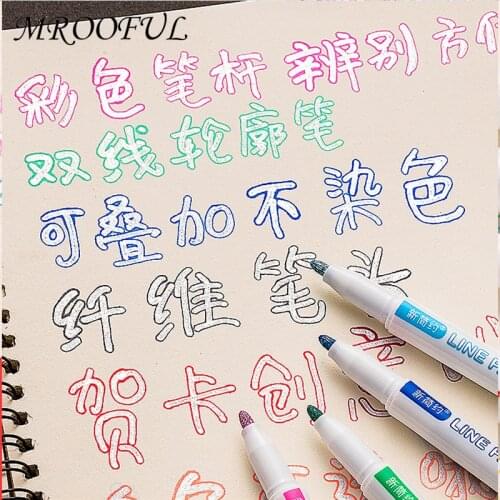 MROOFUL
彩色笔杆 辨别方便
双线轮廓笔
可叠加不染色
纤维笔头
贺卡创意
新简约® LINE P
新简约® LINE P